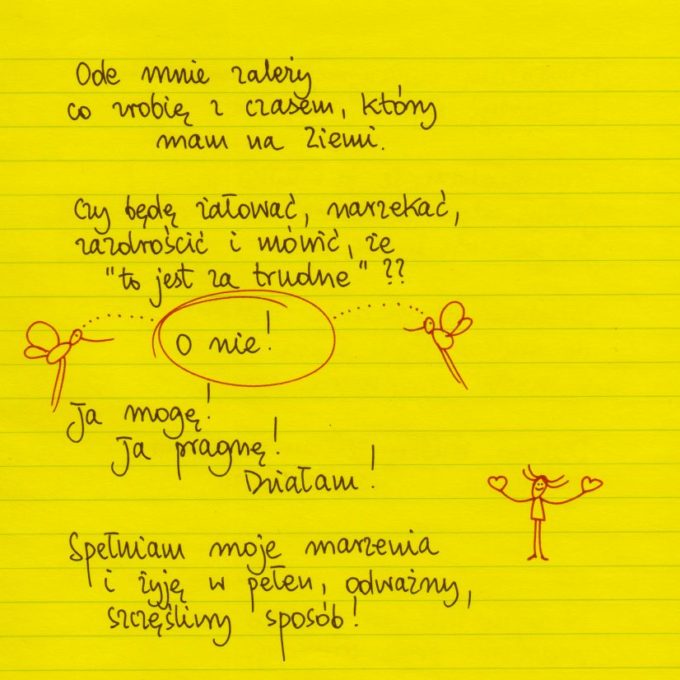 Ode mnie zależy
co zrobię z czasem, który
mam na Ziemi.
Czy będę żałować, narzekać,
zazdrościć i mówić, że
"to jest za trudne"??
O nie!
Ja mogę!
Ja pragnę!
Działam!
Spełniam moje marzenia
i żyję w pełen, odważny,
szczęśliwy sposób!